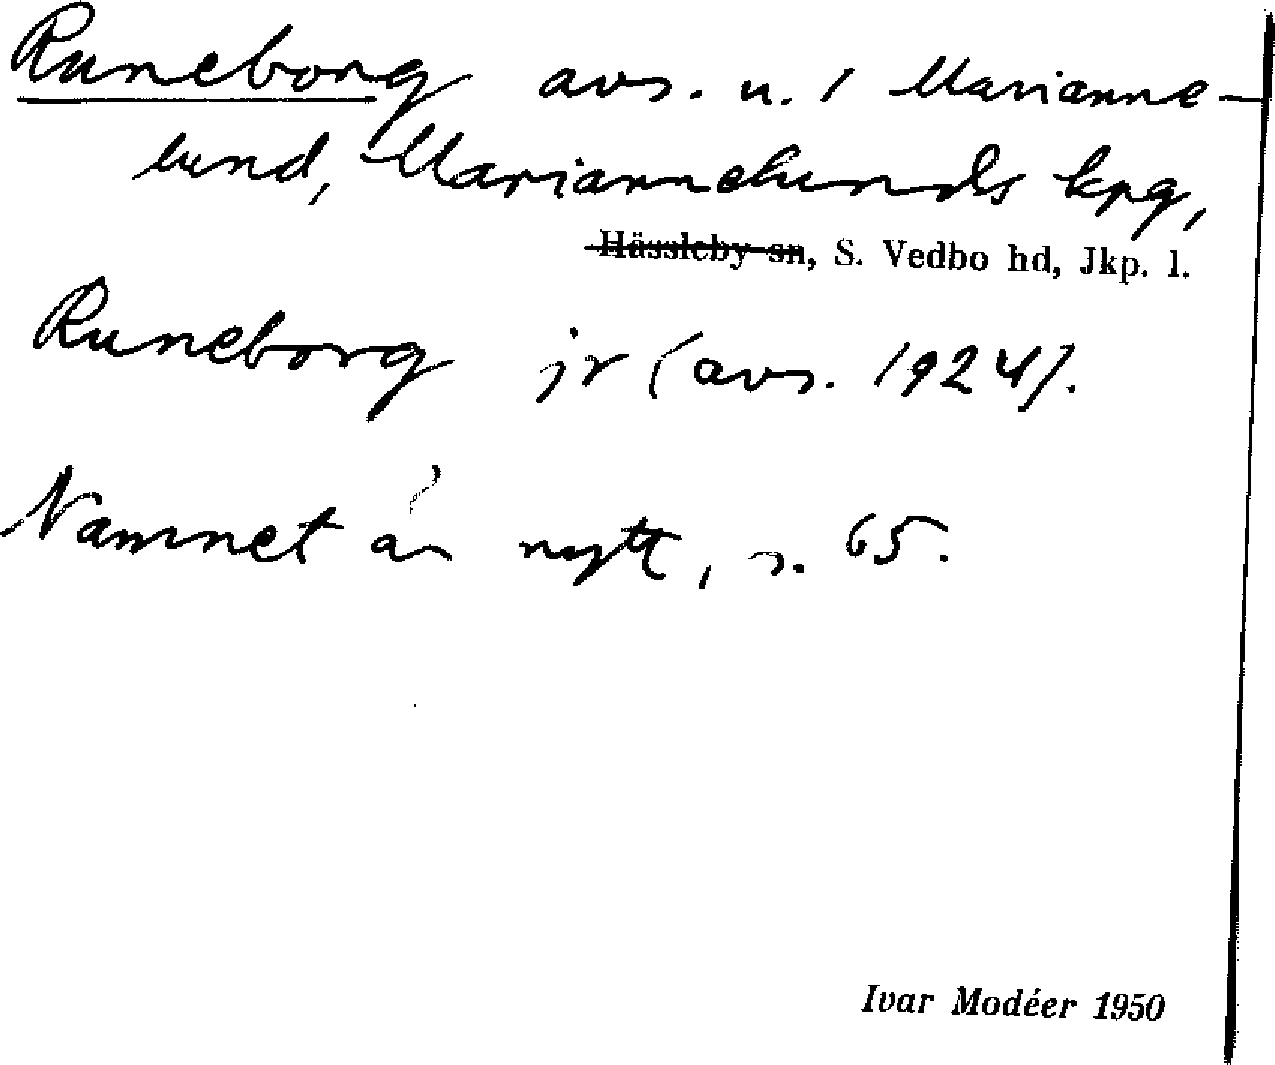 Runeborg avs. u. / Marianne-
lund, Mariannelunds kpg,
Hässleby sn, S. Vedbo hd, Jkp. l.
Runeborg jr (avs. 1924).
Namnet är nytt, s. 65.
Ivar Modéer 1950